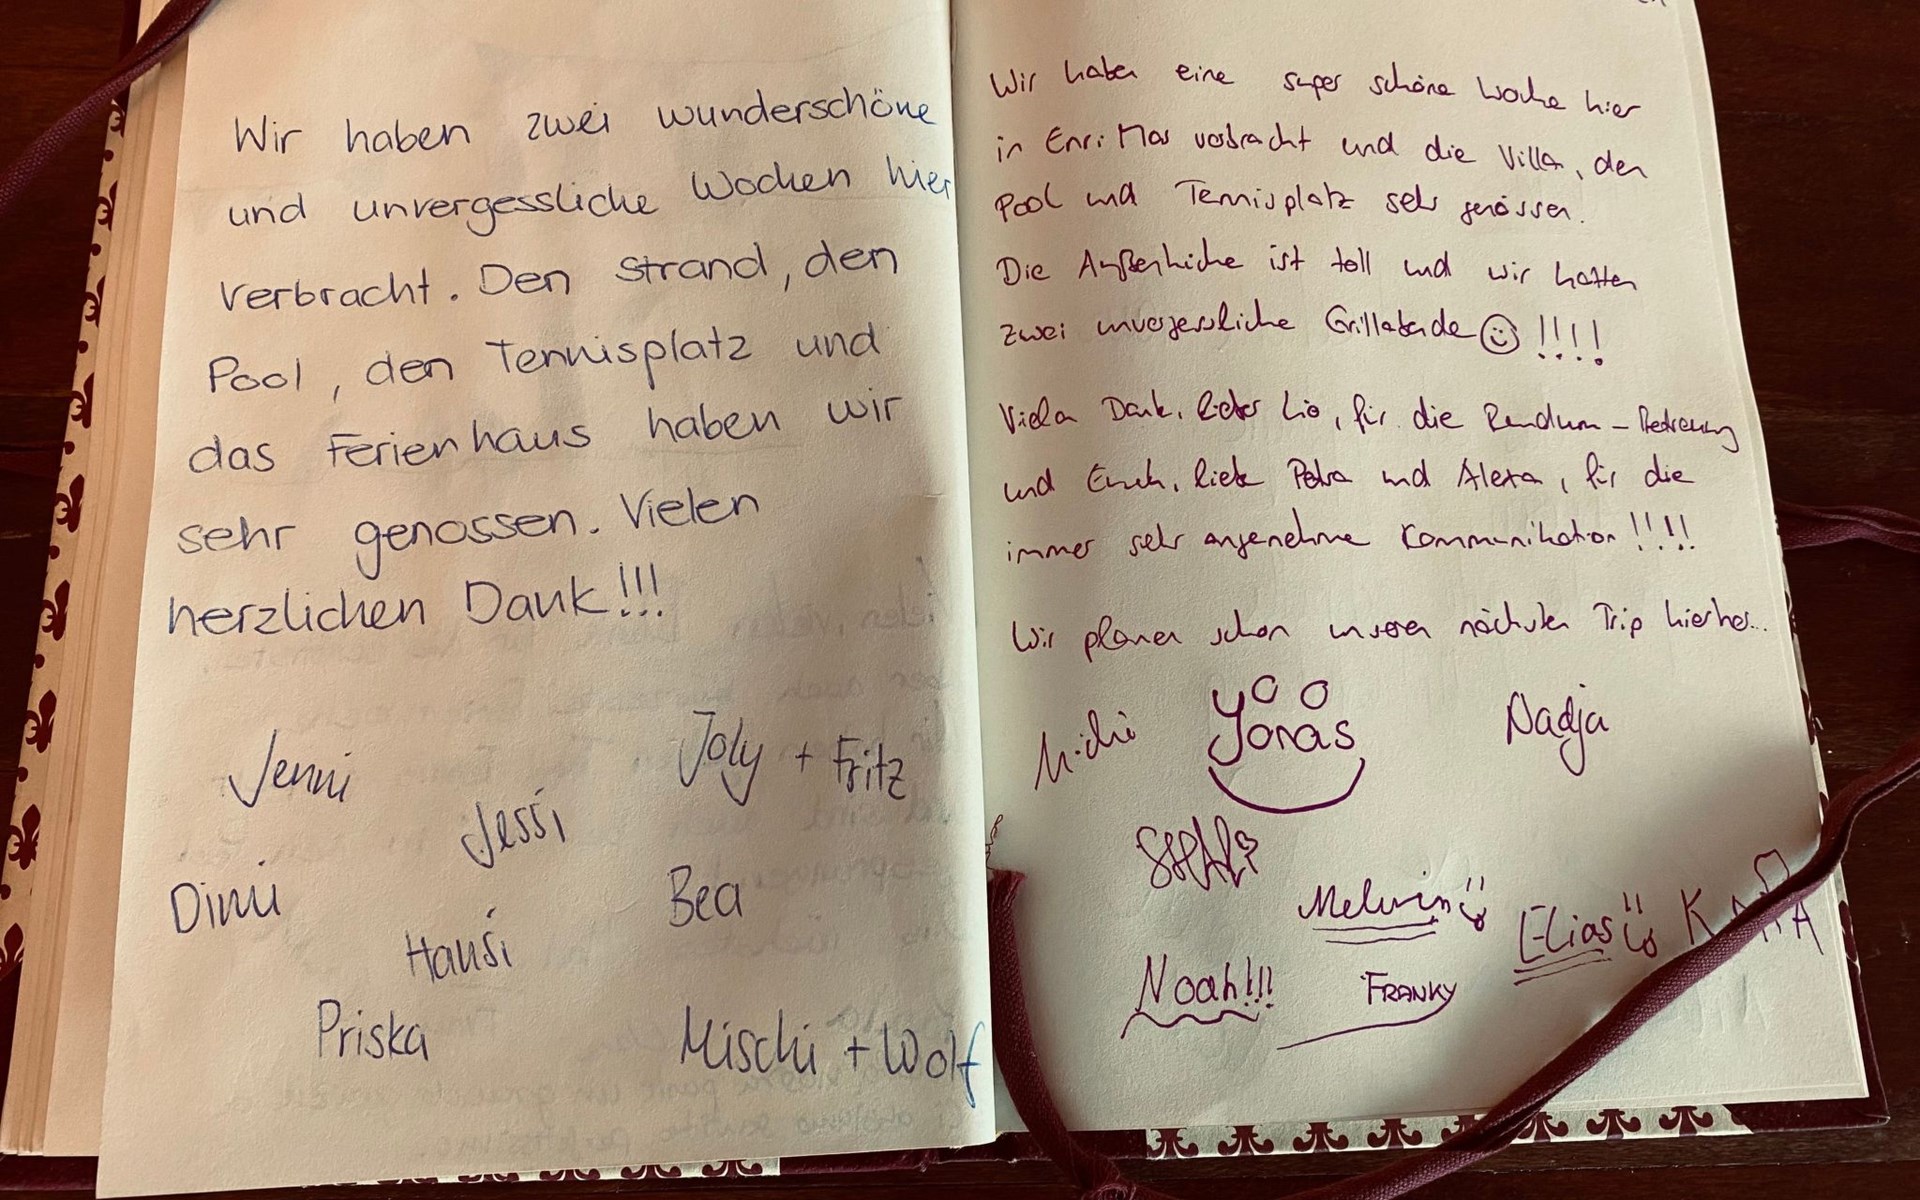 Wir haben zwei wunderschöne
und unvergessliche Wochen hier
verbracht. Den Strand, den
Pool, den Tennisplatz und
das Ferienhaus haben wir
sehr genossen. Vielen
herzlichen Dank!!!
Jenni
Joly + Fritz
Jessi
Dimi
Bea
Hansi
Priska
Mischi + Wolf
Wir haben eine super schöne Woche hier
in Enri Mar verbracht und die Villa, den
Pool und Tennisplatz sehr genossen.
Die Außenküche ist toll und wir hatten
zwei unvergessliche Grillabende ☺ !!!!
Vielen Dank, lieber Lio, für die Rundum-Betreuung
und Euch, liebe Petra und Alexa, für die
immer sehr angenehme Kommunikation!!!!
Wir planen schon unseren nächsten Trip hierher...
Michi
Yonas
Nadja
Melvin
Elias
Noah!!!
FRANKY